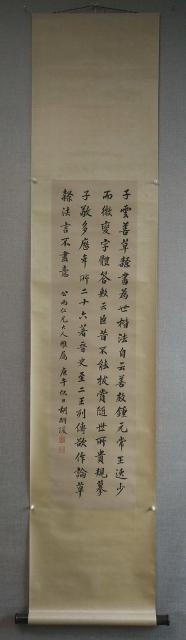 子雲善草隸書為世楷法自云善效鍾元常王逸少
而微變字體答敕云臣昔不能拔賞隨世所貴規摹
子敬多歷年所二十六著晉史至二王列傳欲作論草
隸法言不盡意
公雨仁兄大人雅屬 庚午